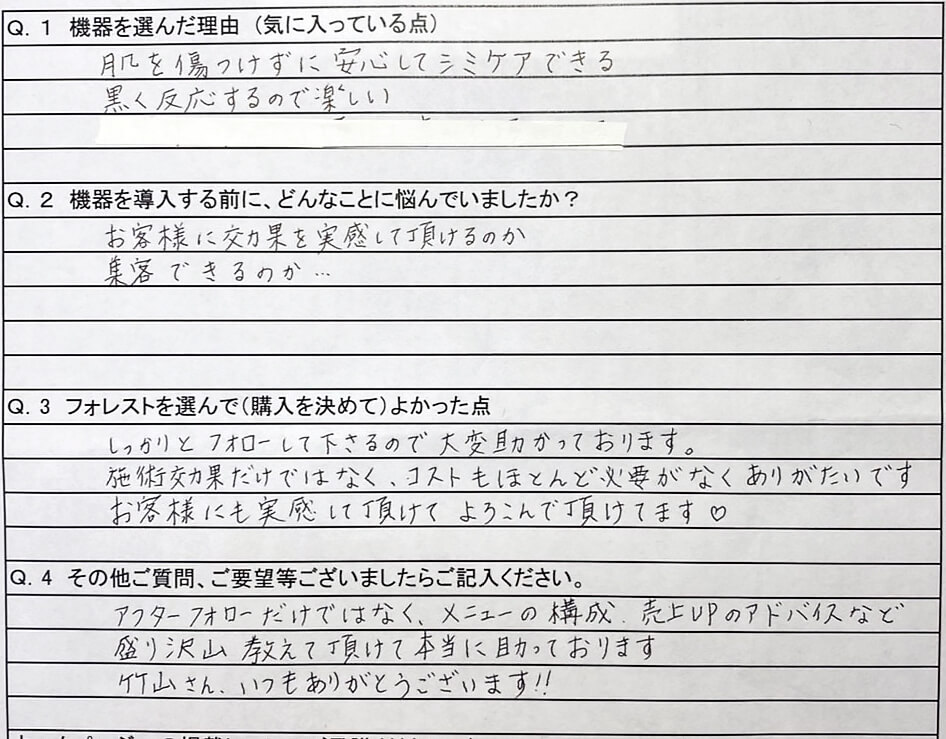 Q. 1 機器を選んだ理由（気に入っている点）
肌を傷つけずに安心してシミケアできる
黒く反応するので楽しい
Q. 2 機器を導入する前に、どんなことに悩んでいましたか？
お客様に効果を実感して頂けるのか
集客できるのか…
Q. 3 フォレストを選んで（購入を決めて）よかった点
しっかりとフォローして下さるので大変助かっております。
施術効果だけではなく、コストもほとんど必要がなくありがたいです
お客様にも実感して頂けてよろこんで頂けてます♡
Q. 4 その他ご質問、ご要望等ございましたらご記入ください。
アフターフォローだけではなく、メニューの構成、売上UPのアドバイスなど
盛り沢山教えて頂けて本当に助っております
竹山さん、いつもありがとうございます!!